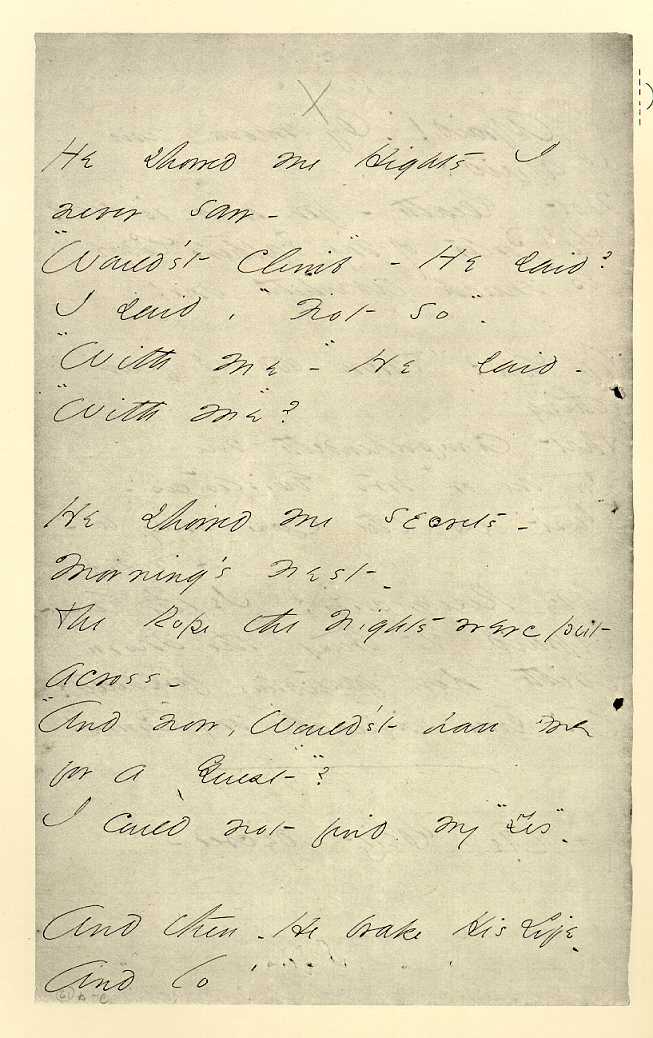 X
He showed me Hights I
never saw -
"Would'st Climb" - He said?
I said, "Not so".
"With me -" He said -
"With me"?
He showed me Secrets -
Morning's Nest -
The Rope the Nights were put
across -
"And now, Would'st have me
for a Guest"?
I could not find my "Yes".
And then - He brake His Life -
And lo